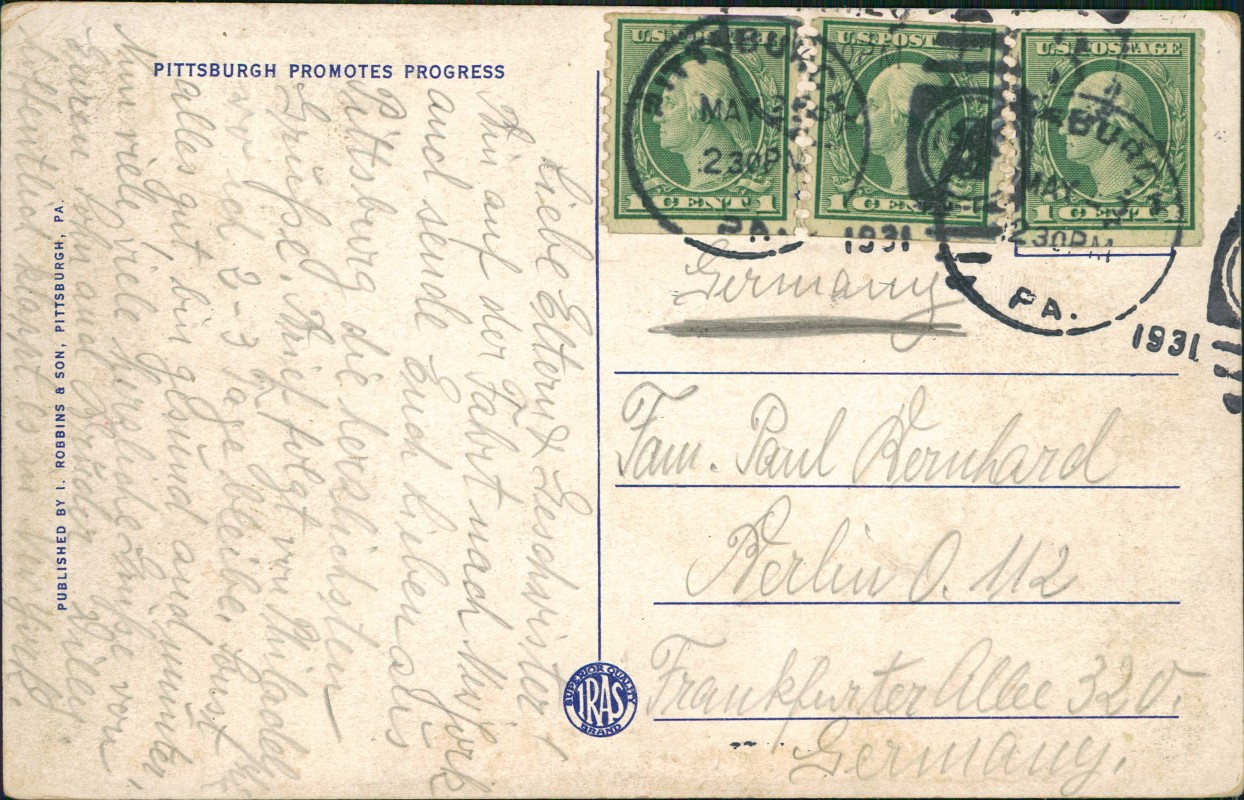 PITTSBURGH PROMOTES PROGRESS
PUBLISHED BY I. ROBBINS & SON, PITTSBURGH, PA.
Liebe Eltern & Geschwister
Bin auf der Fahrt nach
und sende Euch lieben aus
Pittsburg die herzlichsten
Grüße. Brief folgt von
wo ich 2-3 Tage bleibe. Sonst
alles gut bin gesund und munter,
Nun viele viele herzliche Grüße von
Euren Sohn und Bruder Willy
Hoffentlich klappt es in
SUPERIOR QUALITY
IRAS
BRAND
U.S. POSTAGE
1 CENT 1
U.S. POSTAGE
1 CENT 1
U.S. POSTAGE
1 CENT 1
PITTSBURGH
230PM
PA.
1931
PITTSBURGH
MAY
230PM
PA.
1931
Germany
Fam. Paul Bernhard
Berlin O. 112
Frankfurter Allee 320.
Germany.